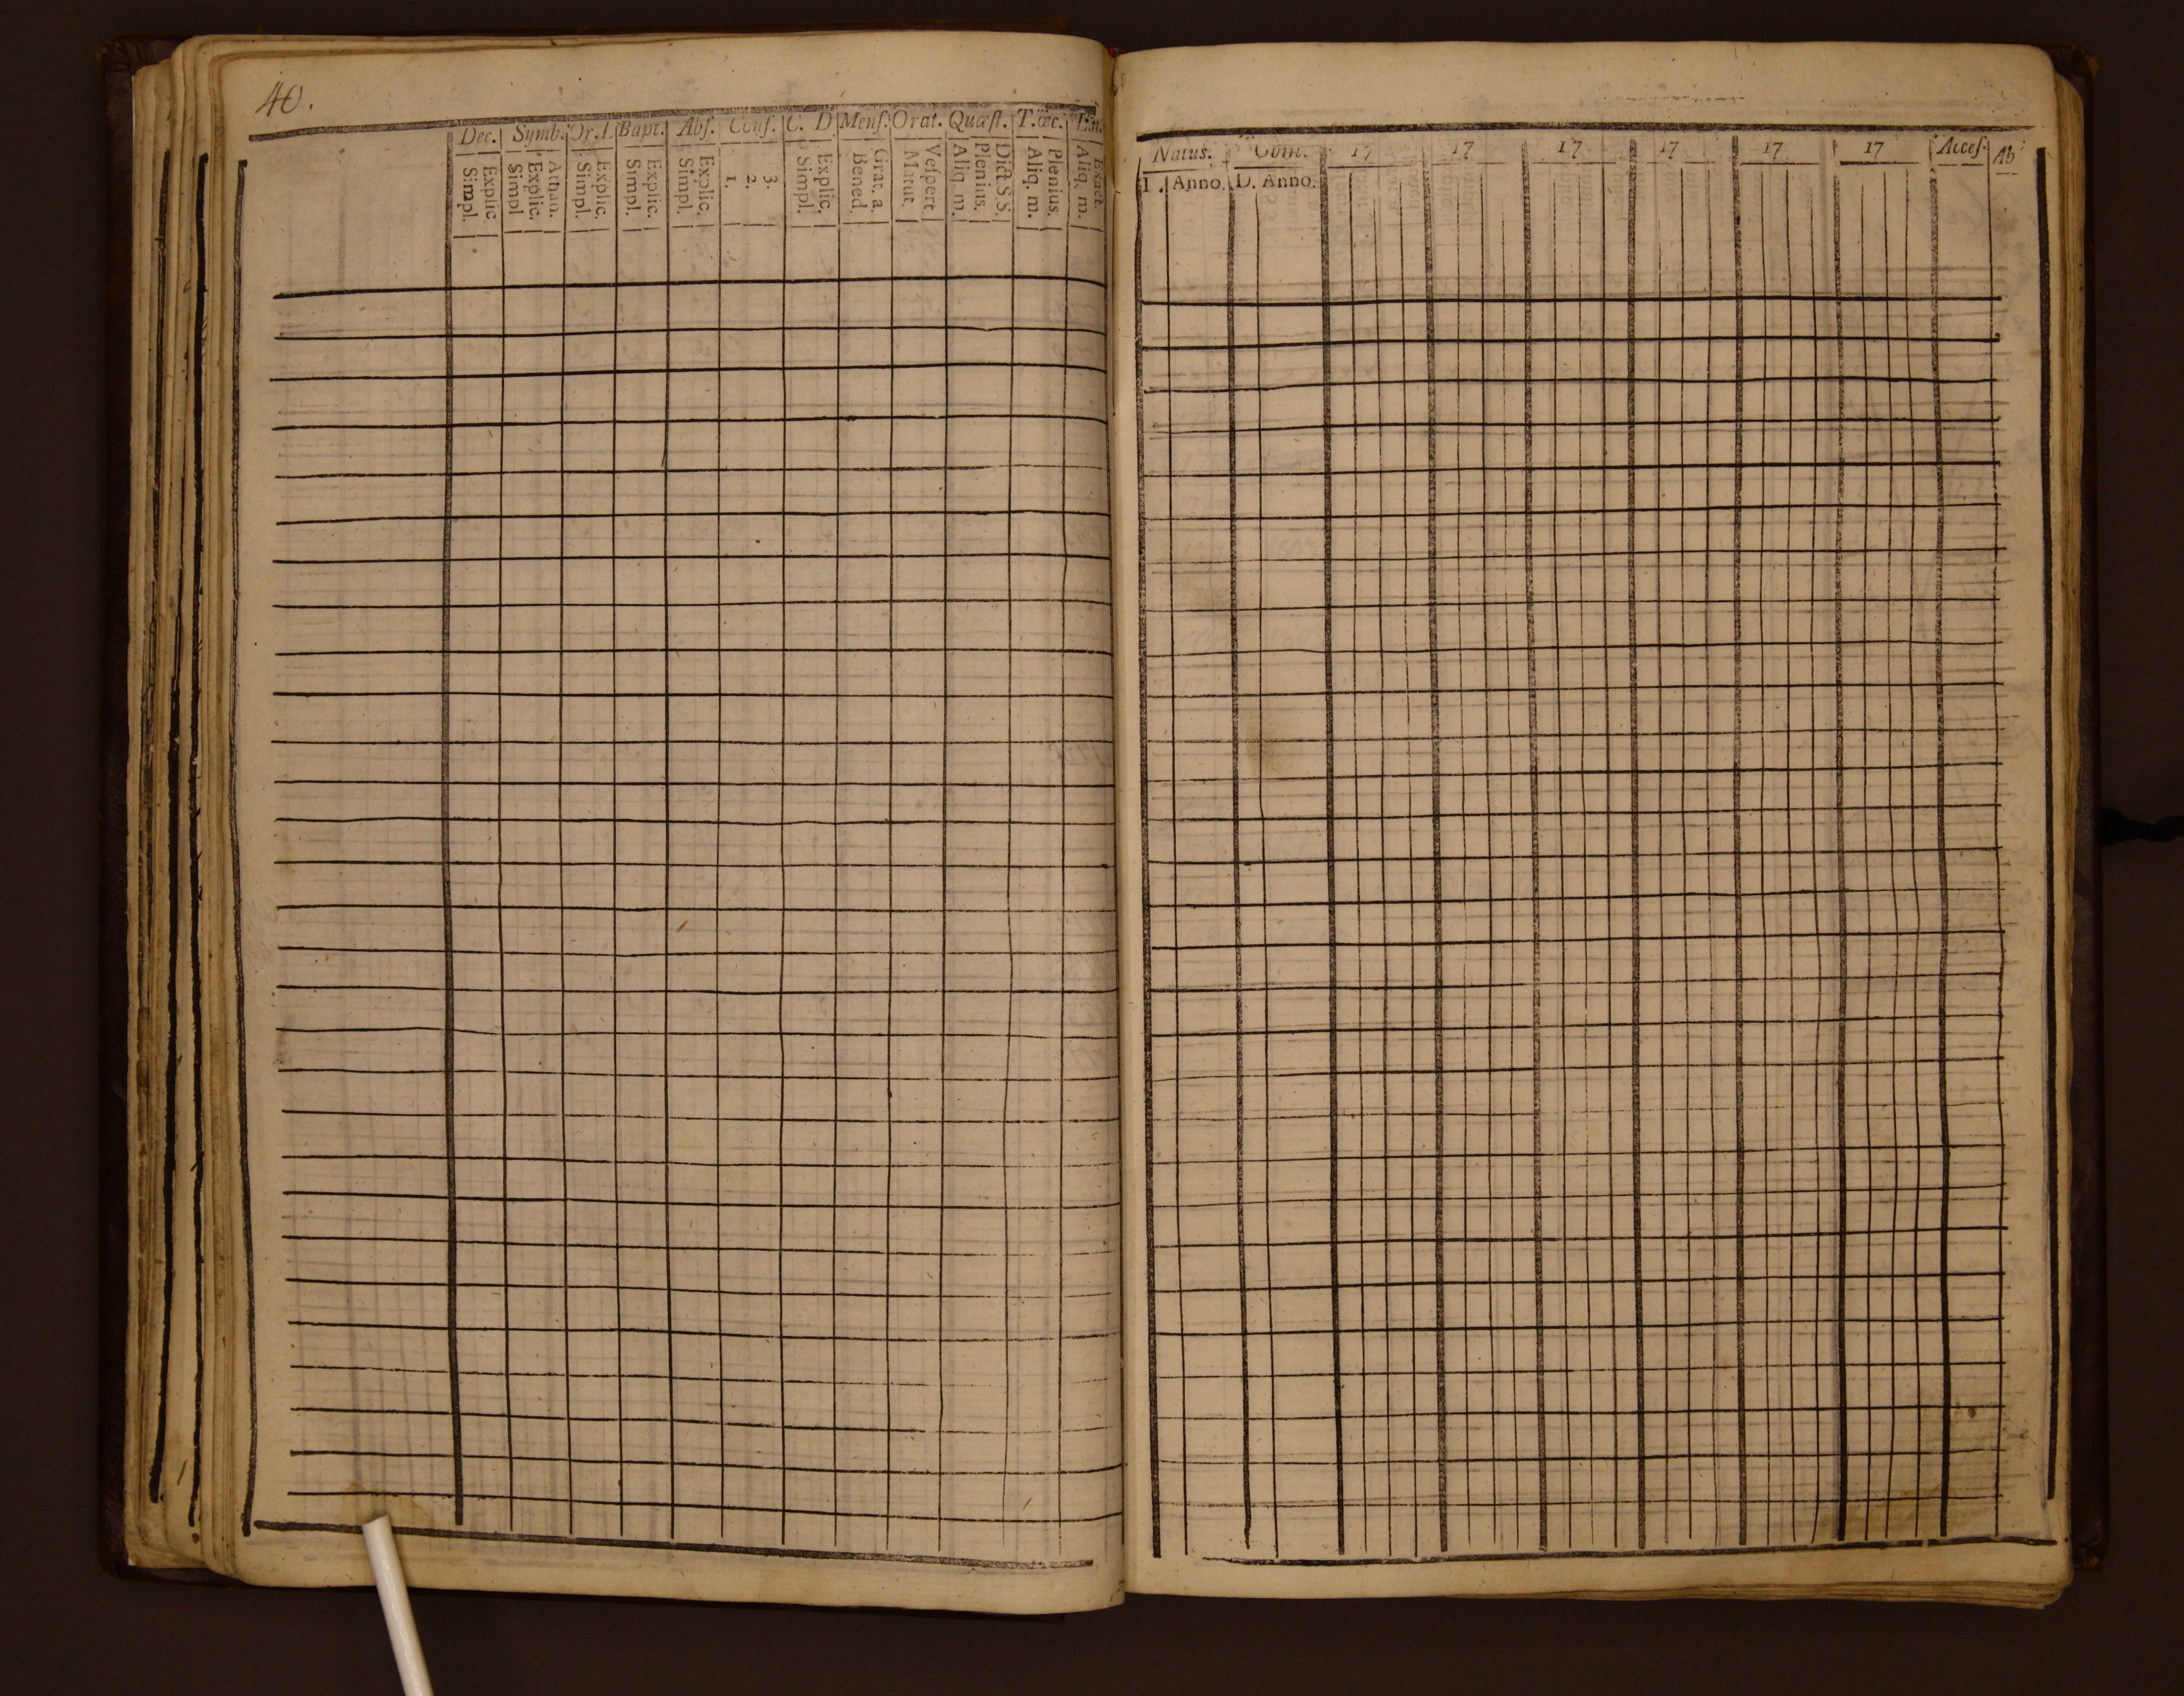 40.
Dec. Symb. Or. Bapt. Abſ. Conf. C. D. Menſ. Orat. Quæſt. T. œc. Lat.
Explic. Simpl.
Athan. Explic. Simpl
Explic. Simpl.
Explic. Simpl.
Explic. Simpl.
3. 2. 1.
Explic. Simpl.
Grat. a. Bened.
Veſpert. Matut.
Dict. S.S. Plenius. Aliq. m.
Plenius. Aliq. m.
Exact. Aliq. m.
Natus. Com. 17 17 17 17 17 17 Acceſ. Ab
Anno. D. Anno.